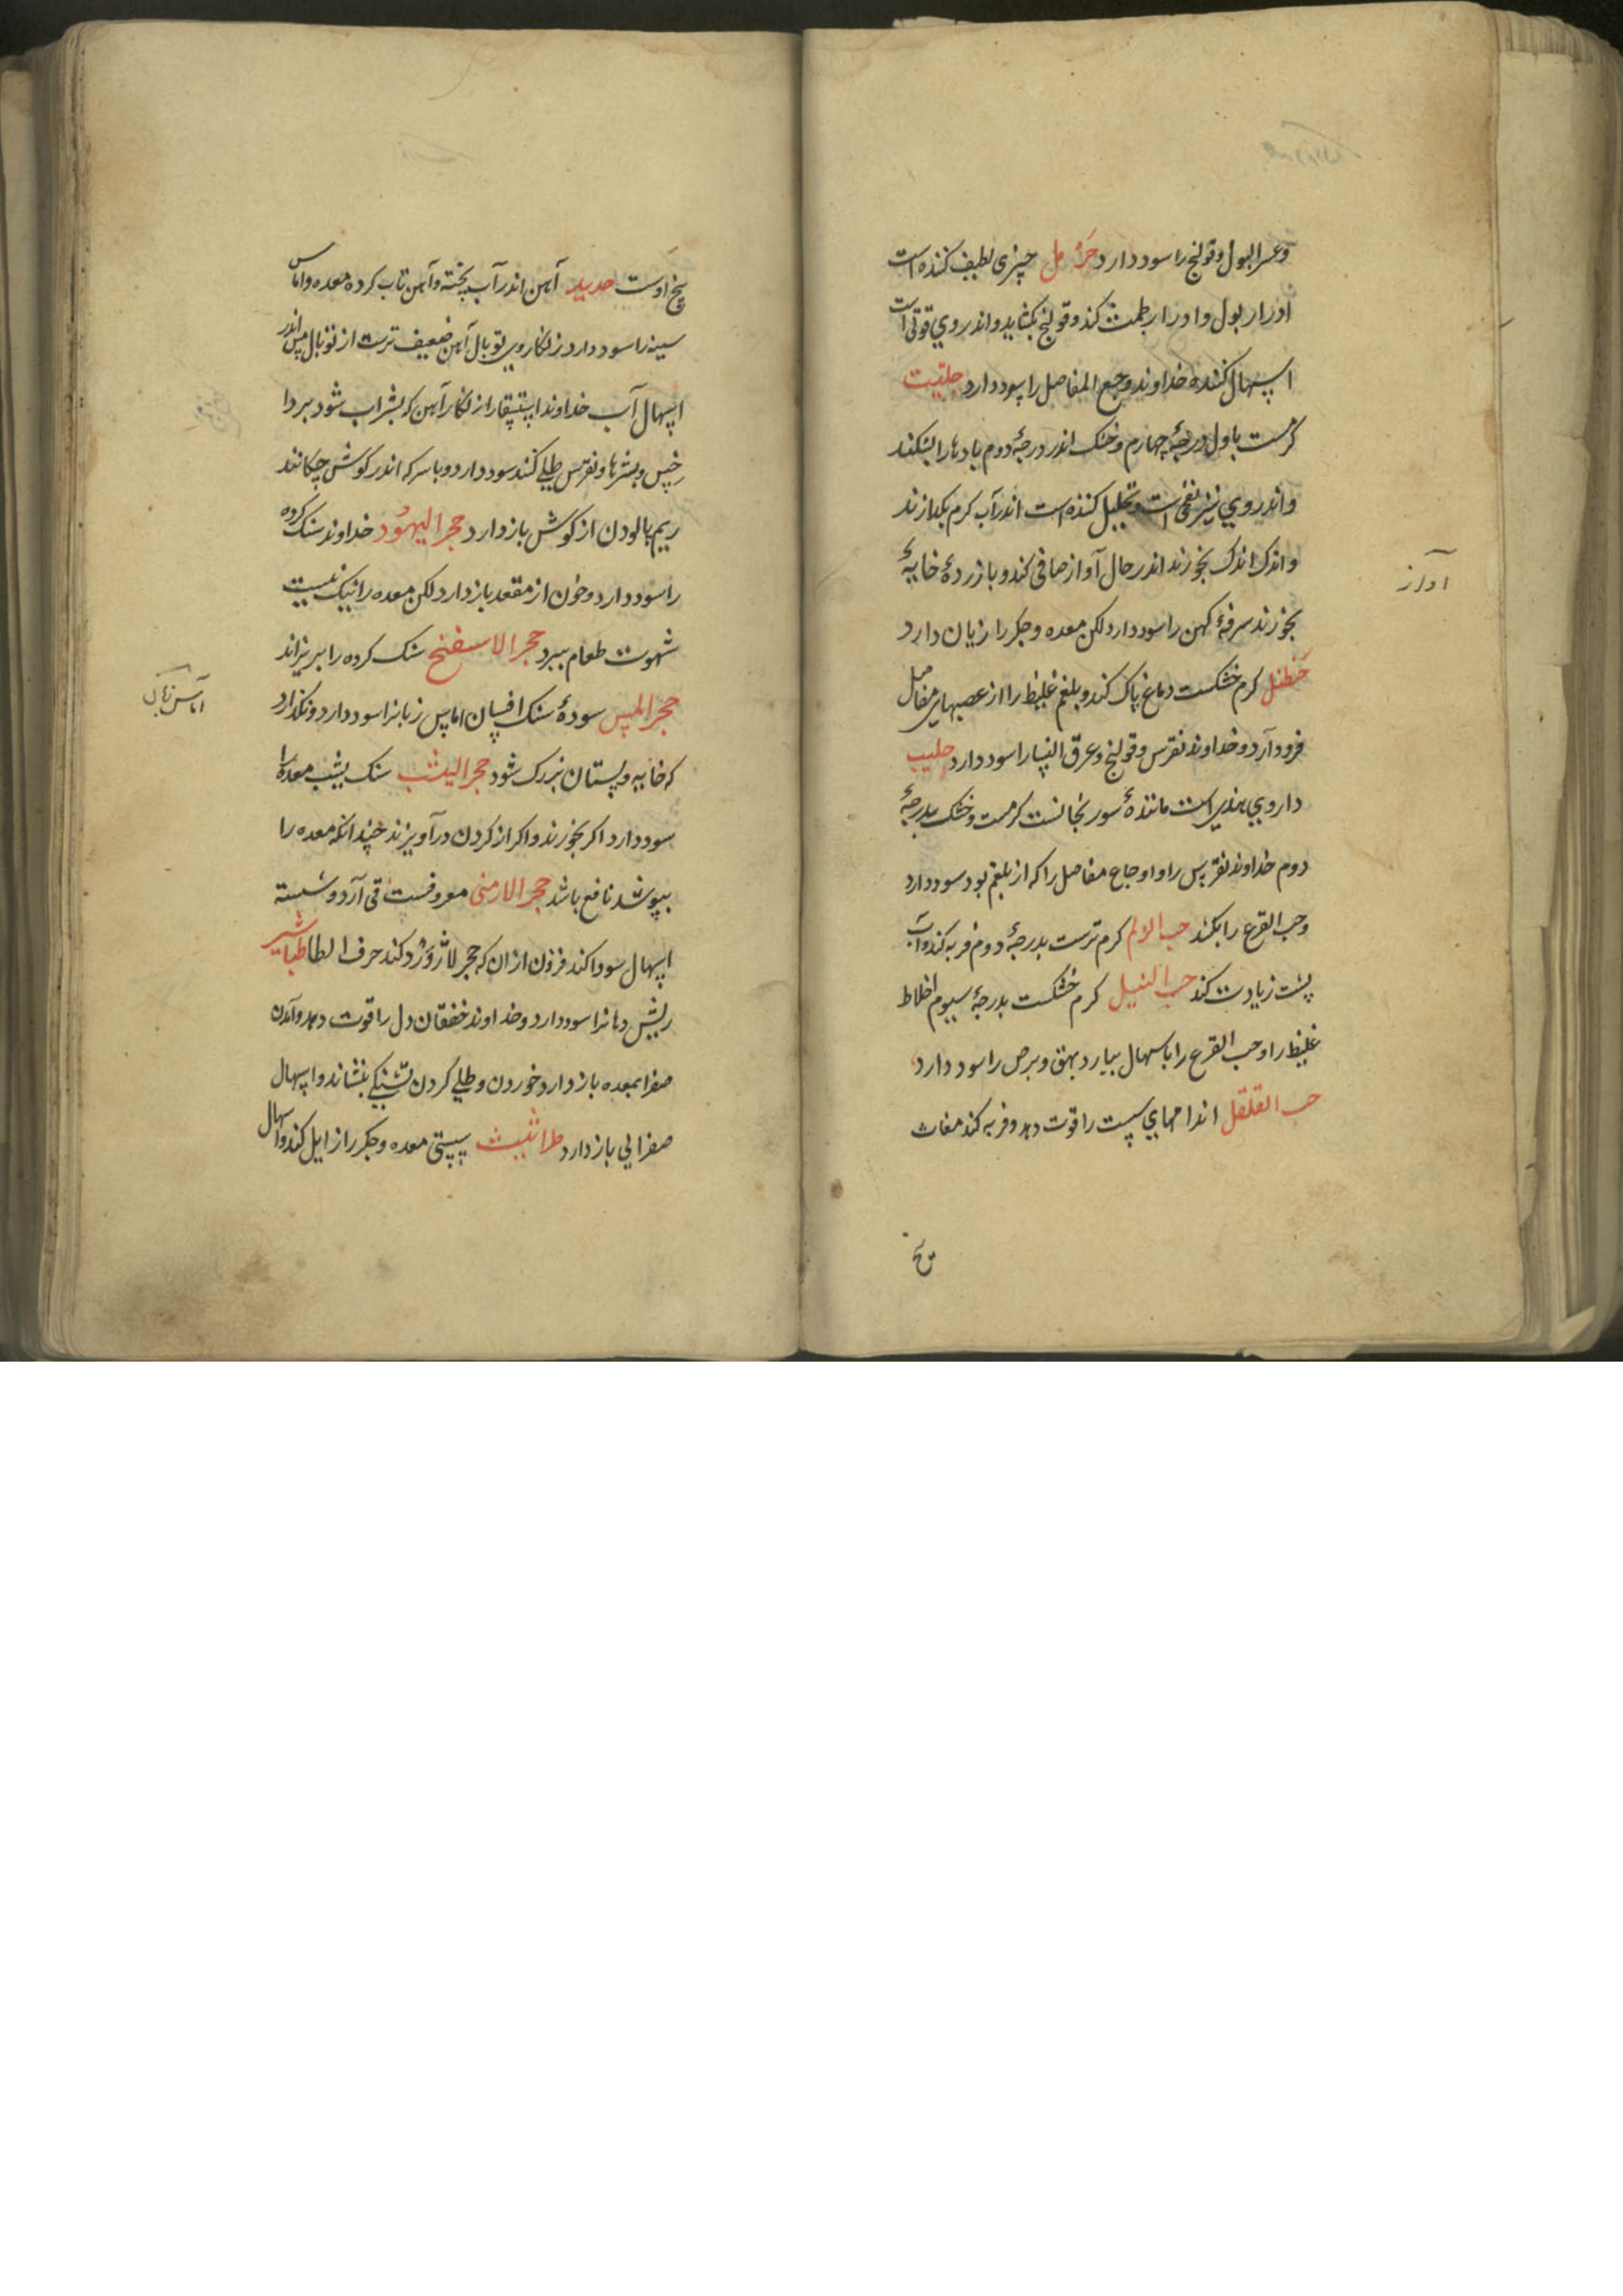 وعسر البول و قولنج را سود دارد حَرمل چیزی لطیف کننده است
ادرار بول و ادرار طمث کند و قولنج بکشاید و اندر وي قوتی است
اسهال کننده خداوند وجع المفاصل را سود دارد حلتیت
کرمست باول درجهٔ چهارم و خشک اندر درجهٔ دوم بادها را بشکند
و اندر وي نیز نفخی است و تحلیل کننده است اندر آب کرم بکدازند
و اندک اندک بخورند اندر حال آواز صافی کند و با زردهٔ خایهٔ
آواز
بخورند سرفهٔ کهن را سود دارد لکن معده و جکر را زیان دارد
حَنظل کرم خشکست دماغ پاک کند و بلغم غلیظ را از عصبهای مفاصل
فرود آرد و خداوند نقرس و قولنج و عرق النسا را سود دارد حلیب
داروي هندی است مانندهٔ سورنجانست کرمست و خشک بدرجهٔ
دوم خداوند نقرس را و اوجاع مفاصل را که از بلغم بود سود دارد
و حب القرع را بکشد حب الالم کرم ترست بدرجهٔ دوم فربه کند و آب
پشت زیادت کند حب النیل کرم خشکست بدرجهٔ سیوم اخلاط
غلیظ را و حب القرع را باسهال بیارد بهق و برص را سود دارد
حب القلقل اندامهاي سست را قوت دهد و فربه کند مغاث
بیخ
بیخ اوست حدید آهن اندر آب پخته و آهن تاب کرده معده و اماس
سینه را سود دارد زنکار وی توبال آهن ضعیف ترست از توبال مس اندر
اسهال آب خداوند استسقا را زنکار آهن که بشراب شود بر دا
خس و بثرها و نقرس طلی کنند سود دارد و با سرکه اندر کوش چکانند
ریم پالودن از کوش باز دارد حجر الیهُود خداوند سنک کرده
را سود دارد و خون از مقعد باز دارد لکن معده را نیک نیست
شهوت طعام ببرد حجر الاسفنج سنک کرده را بریزاند
حجر المس سودهٔ سنک افسان اماس زبانرا سود دارد و نکذارد
اماس زبان
که خایه و پستان بزرک شود حجر الیشب سنک یشب معده را
سود دارد اکر بخورند و اکر از کردن درآویزند چندانکه معده را
بپوشد نافع باشد حجر الارمنی معروفست قی آرد و شسته
اسهال سودا کند فزون ازان که حجر لاژوَرد کند حرف الطا طباشیر
ریش دهانرا سود دارد و خداوند خفقان دل را قوت دهد و آمدن
صفرا بمعده باز دارد خوردن و طلی کردن تشنکی بنشاند و اسهال
صفرایی باز دارد طراثیث سستی معده و جکر را زایل کند و اسهال